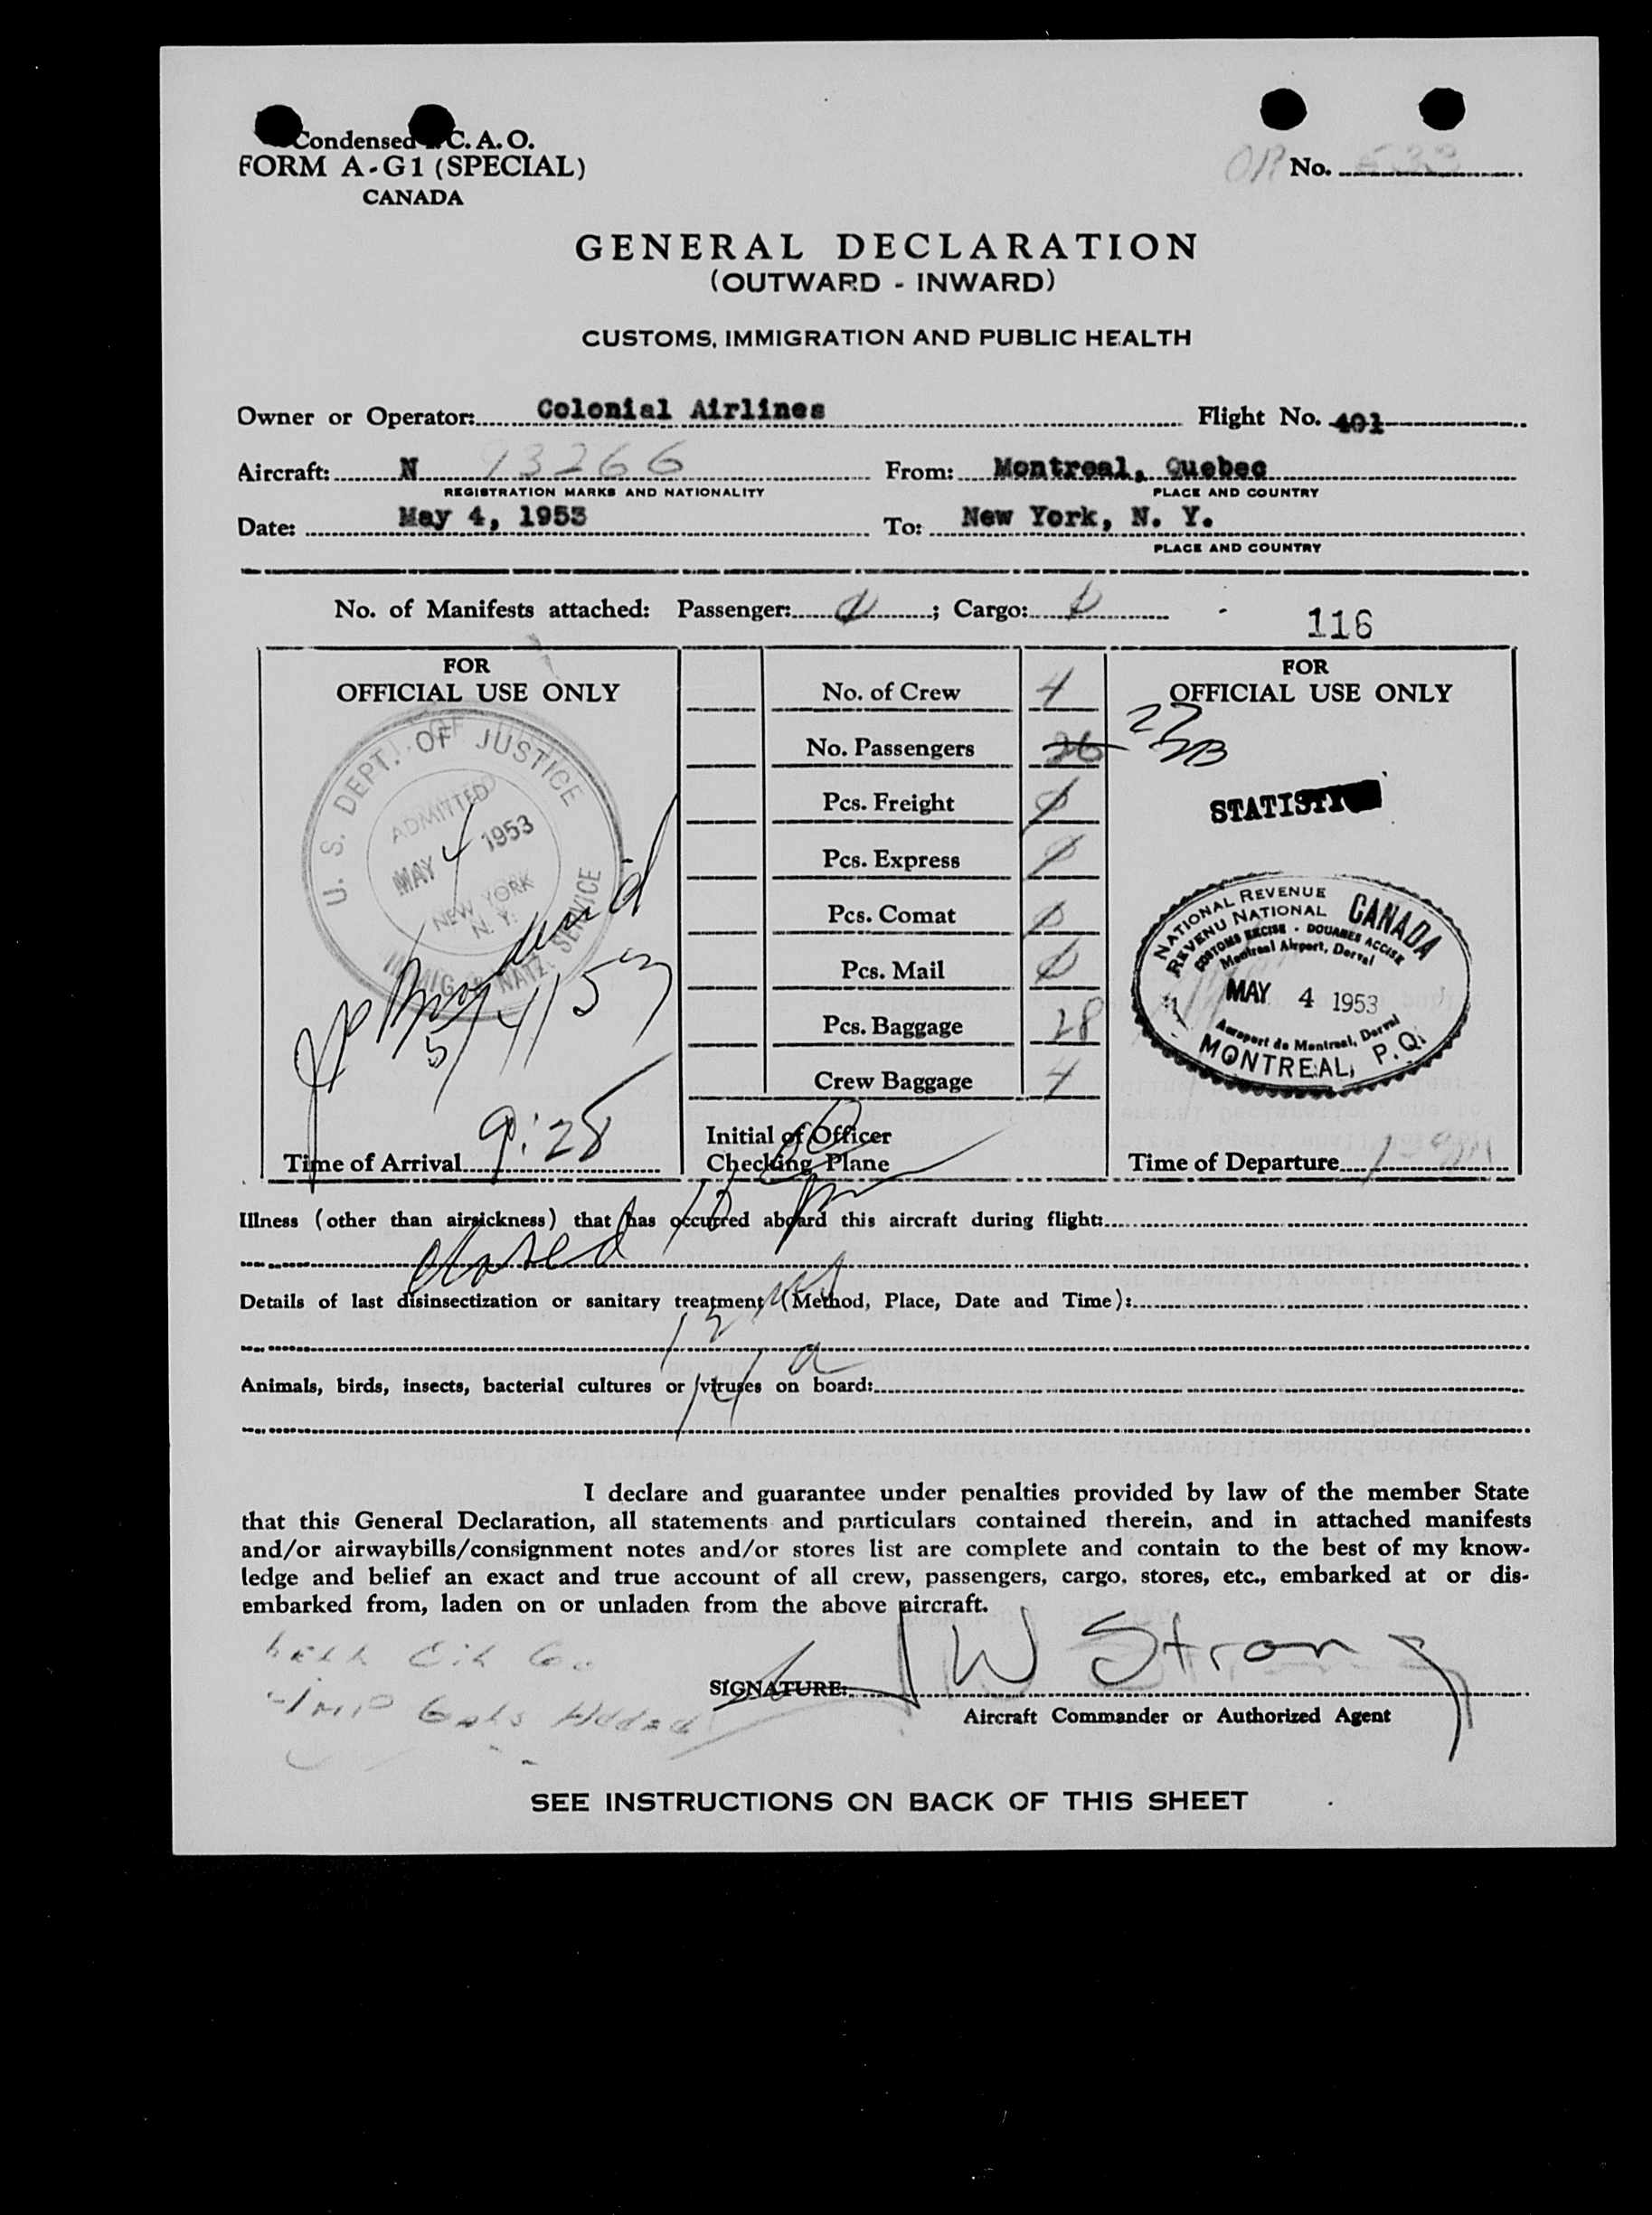 Condensed C. A. O.
FORM A-G1 (SPECIAL)
CANADA
No.
GENERAL DECLARATION
(OUTWARD - INWARD)
CUSTOMS, IMMIGRATION AND PUBLIC HEALTH
Owner or Operator: Colonial Airlines Flight No. 401
Aircraft: N 93266 From: Montreal, Quebec
REGISTRATION MARKS AND NATIONALITY PLACE AND COUNTRY
Date: May 4, 1953 To: New York, N. Y.
PLACE AND COUNTRY
No. of Manifests attached: Passenger: ; Cargo:
116
FOR
OFFICIAL USE ONLY
U. S. DEPT. OF JUSTICE
ADMITTED
MAY 4 1953
NEW YORK
N. Y.
IMMIG. & NATZ. SERVICE
5/4/53
Time of Arrival 9:28
No. of Crew 4
No. Passengers 26
Pcs. Freight 0
Pcs. Express 0
Pcs. Comat 0
Pcs. Mail 0
Pcs. Baggage 28
Crew Baggage 4
Initial of Officer
Checking Plane
FOR
OFFICIAL USE ONLY
NATIONAL REVENUE
REVENU NATIONAL
CANADA
CUSTOMS EXCISE - DOUANES ACCISE
Montreal Airport, Dorval
MAY 4 1953
Aeroport de Montreal, Dorval
MONTREAL, P.Q.
Time of Departure
Illness (other than airsickness) that has occurred aboard this aircraft during flight:
closed
Details of last disinsectization or sanitary treatment (Method, Place, Date and Time):
Animals, birds, insects, bacterial cultures or viruses on board:
I declare and guarantee under penalties provided by law of the member State
that this General Declaration, all statements and particulars contained therein, and in attached manifests
and/or airwaybills/consignment notes and/or stores list are complete and contain to the best of my know-
ledge and belief an exact and true account of all crew, passengers, cargo, stores, etc., embarked at or dis-
embarked from, laden on or unladen from the above aircraft.
SIGNATURE: W Strong
Aircraft Commander or Authorized Agent
SEE INSTRUCTIONS ON BACK OF THIS SHEET